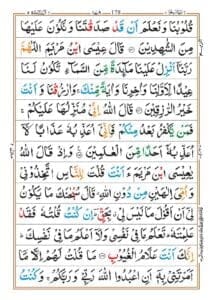 قُلُوۡبُنَا وَنَعۡلَمَ اَنۡ قَدۡ صَدَقۡتَنَا وَنَكُوۡنَ عَلَيۡهَا
مِنَ الشّٰهِدِيۡنَ ﴿۱۱۳﴾ قَالَ عِيۡسَى ابۡنُ مَرۡيَمَ اللّٰهُمَّ
رَبَّنَاۤ اَنۡزِلۡ عَلَيۡنَا مَآئِدَةً مِّنَ السَّمَآءِ تَكُوۡنُ لَنَا
عِيۡدًا لِّاَوَّلِنَا وَاٰخِرِنَا وَاٰيَةً مِّنۡكَ‌ۚ وَارۡزُقۡنَا وَاَنۡتَ
خَيۡرُ الرّٰزِقِيۡنَ ﴿۱۱۴﴾ قَالَ اللّٰهُ اِنِّىۡ مُنَزِّلُهَا عَلَيۡكُمۡ‌ۚ
فَمَنۡ يَّكۡفُرۡ بَعۡدُ مِنۡكُمۡ فَاِنِّىۡۤ اُعَذِّبُهٗ عَذَابًا لَّاۤ
اُعَذِّبُهٗۤ اَحَدًا مِّنَ الۡعٰلَمِيۡنَ ﴿۱۱۵﴾ وَاِذۡ قَالَ اللّٰهُ
يٰعِيۡسَى ابۡنَ مَرۡيَمَ ءَاَنۡتَ قُلۡتَ لِلنَّاسِ اتَّخِذُوۡنِىۡ
وَاُمِّىَ اِلٰهَيۡنِ مِنۡ دُوۡنِ اللّٰهِ‌ؕ قَالَ سُبۡحٰنَكَ مَا يَكُوۡنُ لِىۡۤ
اَنۡ اَقُوۡلَ مَا لَيۡسَ لِىۡ بِحَقٍّ‌ؕ اِنۡ كُنۡتُ قُلۡتُهٗ فَقَدۡ
عَلِمۡتَهٗ‌ؕ تَعۡلَمُ مَا فِىۡ نَفۡسِىۡ وَلَاۤ اَعۡلَمُ مَا فِىۡ نَفۡسِكَ‌ؕ
اِنَّكَ اَنۡتَ عَلَّامُ الۡغُيُوۡبِ ﴿۱۱۶﴾ مَا قُلۡتُ لَهُمۡ اِلَّا مَاۤ
اَمَرۡتَنِىۡ بِهٖۤ اَنِ اعۡبُدُوا اللّٰهَ رَبِّىۡ وَرَبَّكُمۡ‌ۚ وَكُنۡتُ